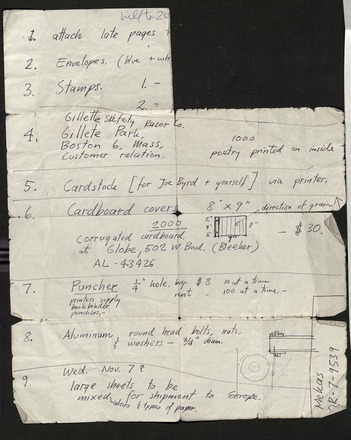 1. attach late pages
2. Envelopes. (blue + wh
3. Stamps. 1. -
2. -
Gillette Safety Razor Co.
4. Gillete Park,
Boston 6, Mass,
Customer relation.
1000
poetry printed on inside
5. Cardstock [for Joe Byrd + yourself] via printer,
6. Cardboard covers 8" x 9" direction of grain
2000
corrugated cardboard
at Globe, 502 W Bnd. (Beeber)
AL - 43426
8"
- $30.
7. Puncher 1/4" hole. buy. $8 10 at a time
rent - 100 at a time. -
printers supply
bookbinder
punchers, -
8. Aluminum round head bolts, nuts,
& washers - 3/4" diam.
9. Wed. Nov. 7?
large sheets to be
mixed for shipment to Europe.
colors & types of paper
Mekas
OR-7-9539